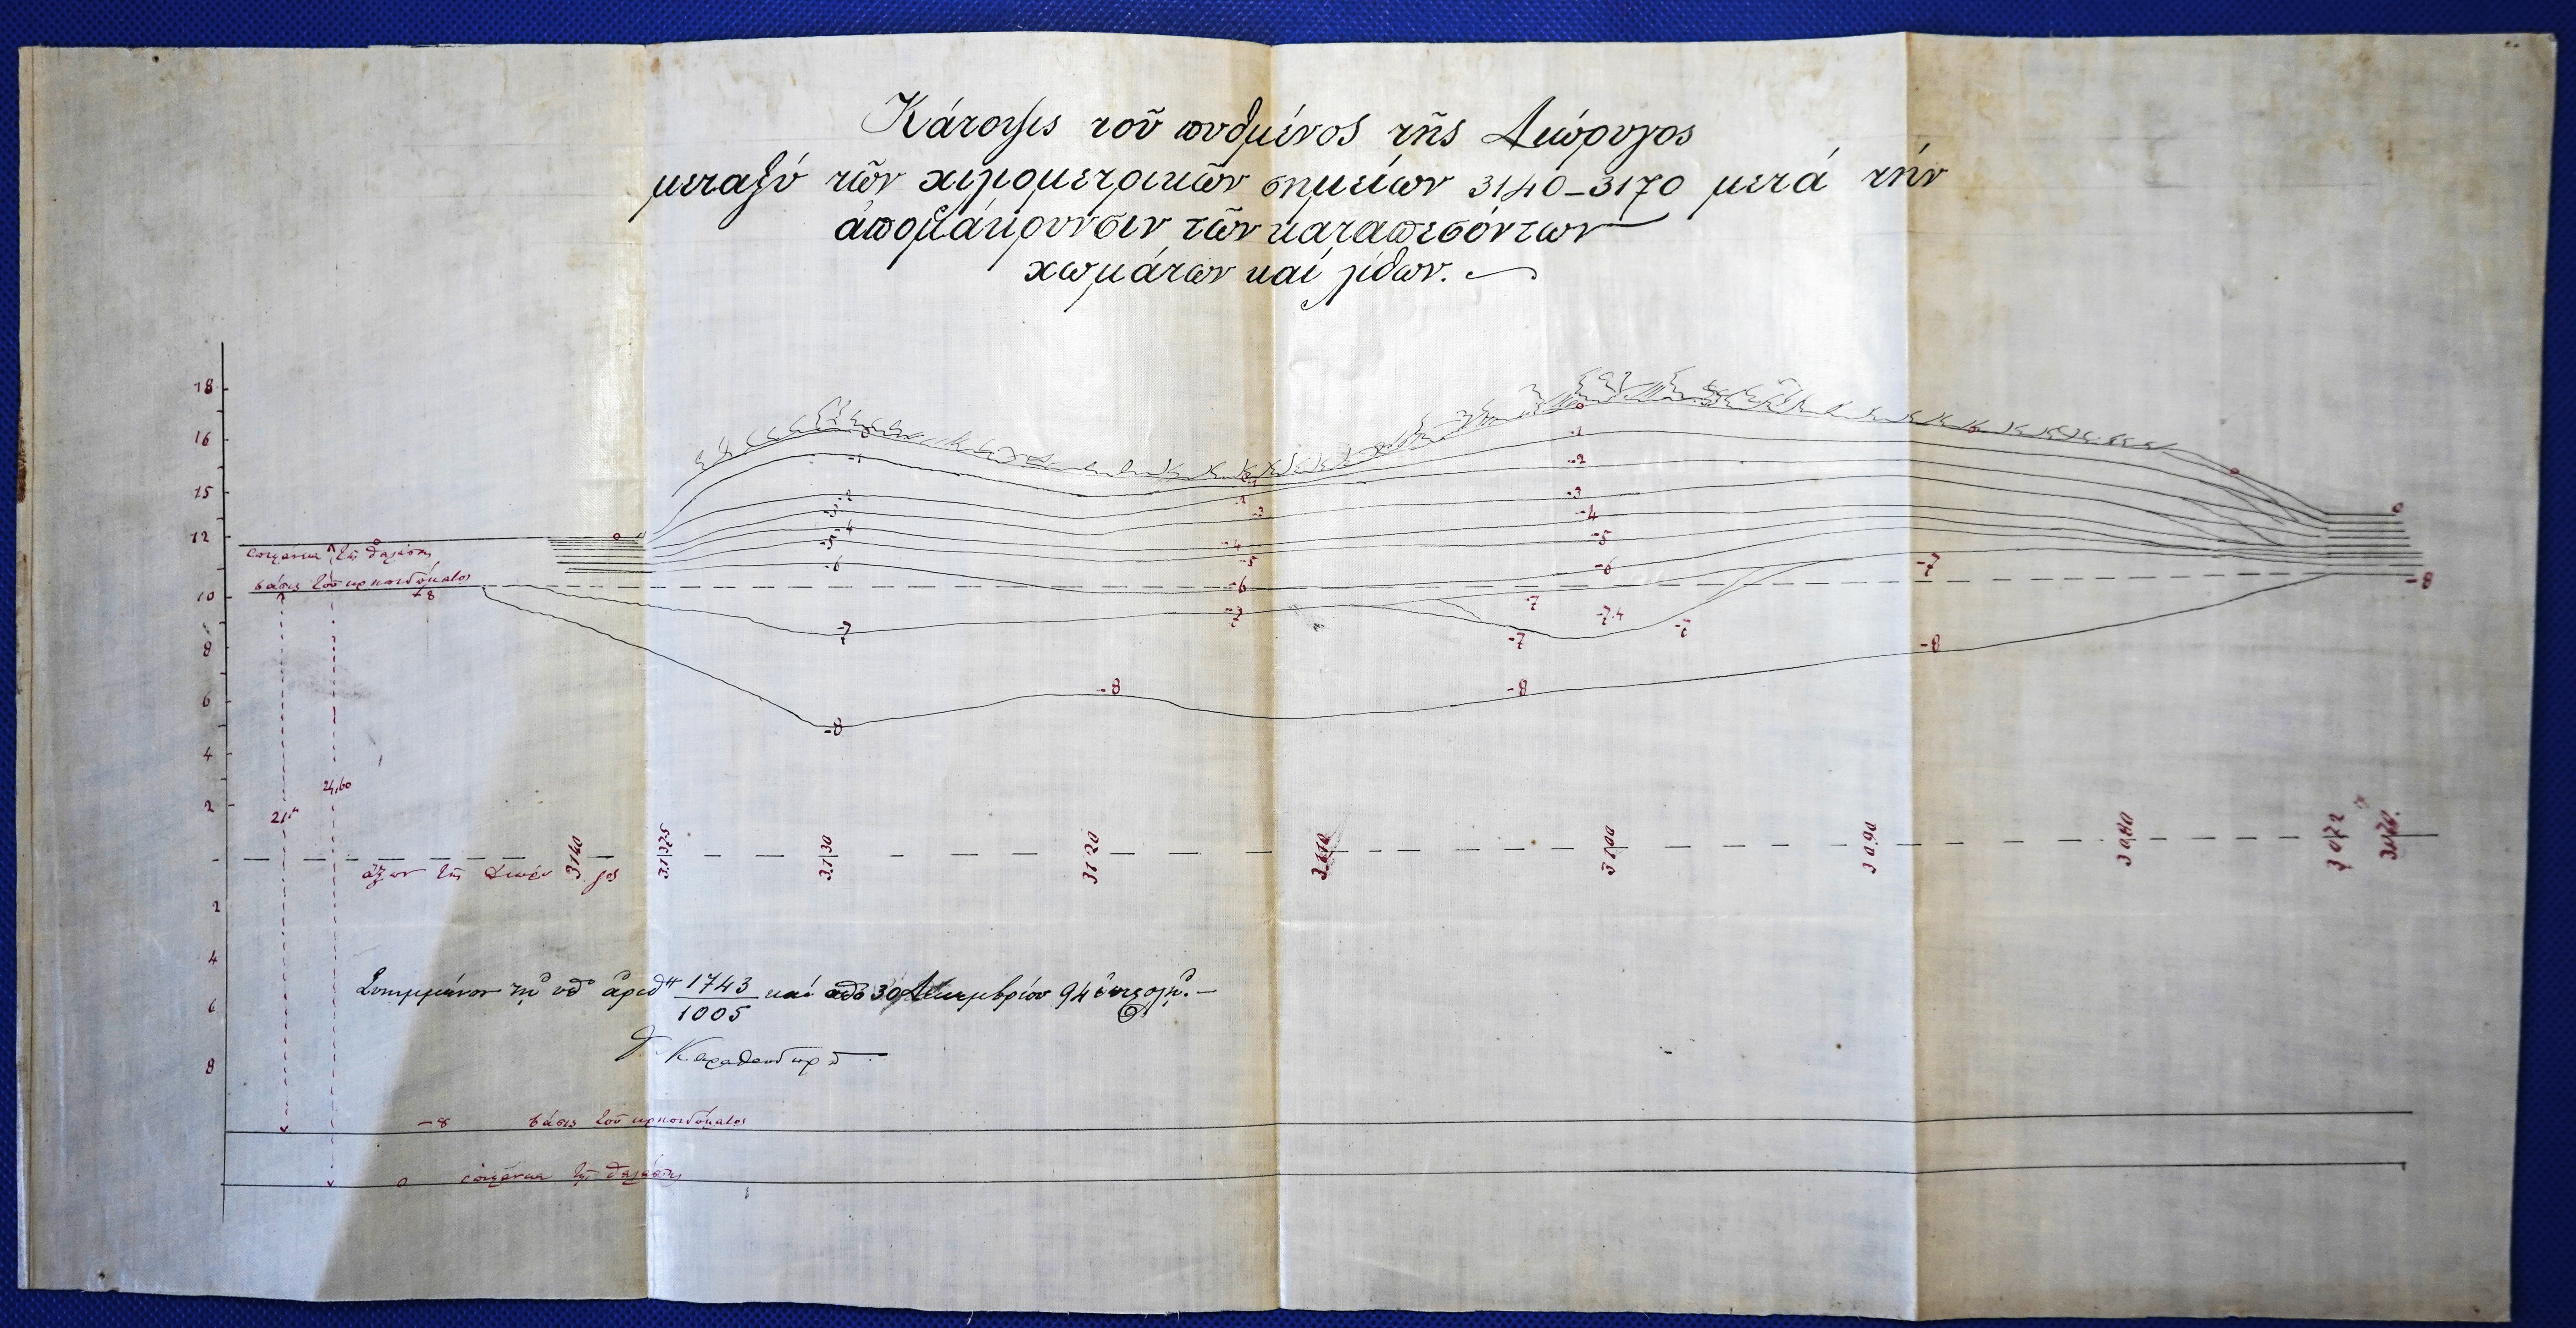 Κάτοψις τοῦ πυθμένος τῆς Διώρυγος
μεταξύ τῶν χιλιομετρικῶν σημείων 3140-3170 μετά τήν
ἀπομάκρυνσιν τῶν καταπεσόντων
χωμάτων καί λίθων.
18
16
15
12
10
8
6
4
2
2
4
6
8
0
-1
-2
-3
-4
-5
-6
-7
-8
0
-1
-2
-3
-4
-5
-6
-7
-8
-1
-2
-3
-4
-5
-6
-7
-7.4
-7
-7
-8
-7
-8
0
-8
0
0
ἐπιφάνεια τῆς θαλάσσης
βάσις τοῦ κρηπιδώματος
-8
24,60
21
ἄξων τῆς Διώρυγος
3140
31375
3130
3120
3110
3100
3090
3080
3072
3070
Συνημμένον τῇ ὑπ' ἀριθ. 1743/1005 καί ἀπό 30 Δεκεμβρίου 94 ἐπιστολῇ.-
-8 βάσις τοῦ κρηπιδώματος
0 ἐπιφάνεια τῆς θαλάσσης